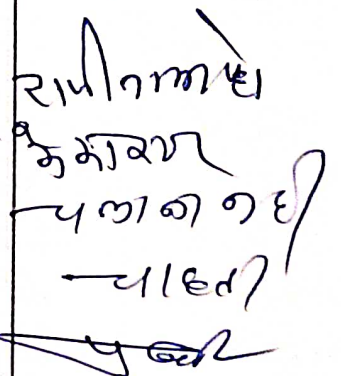 राजीनामा
के कारण
चलाना नही
चाहती